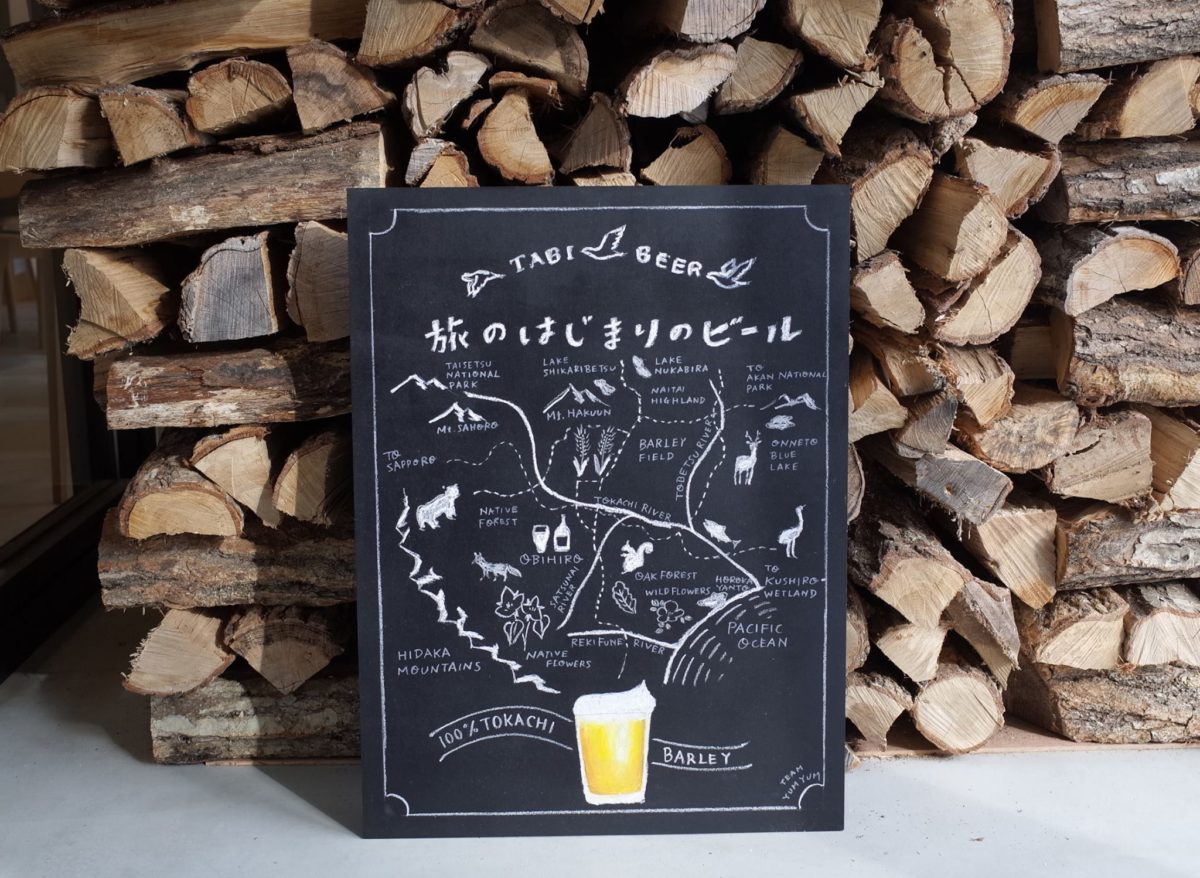 TABI BEER
旅のはじまりのビール
TAISETSU
NATIONAL
PARK
LAKE
SHIKARIBETSU
LAKE
NUKABIRA
TO
AKAN NATIONAL
PARK
Mt. SAHORO
Mt. HAKUUN
NAITAI
HIGHLAND
TO
SAPPORO
BARLEY
FIELD
TOBETSU RIVER
ONNETO
BLUE
LAKE
NATIVE
FOREST
TOKACHI RIVER
OBIHIRO
SATSUNAI
RIVER
OAK FOREST
WILD FLOWERS
HOROKA
YANTO
TO
KUSHIRO
WETLAND
HIDAKA
MOUNTAINS
NATIVE
FLOWERS
REKIFUNE RIVER
PACIFIC
OCEAN
100% TOKACHI
BARLEY
TEAM
YUM YUM